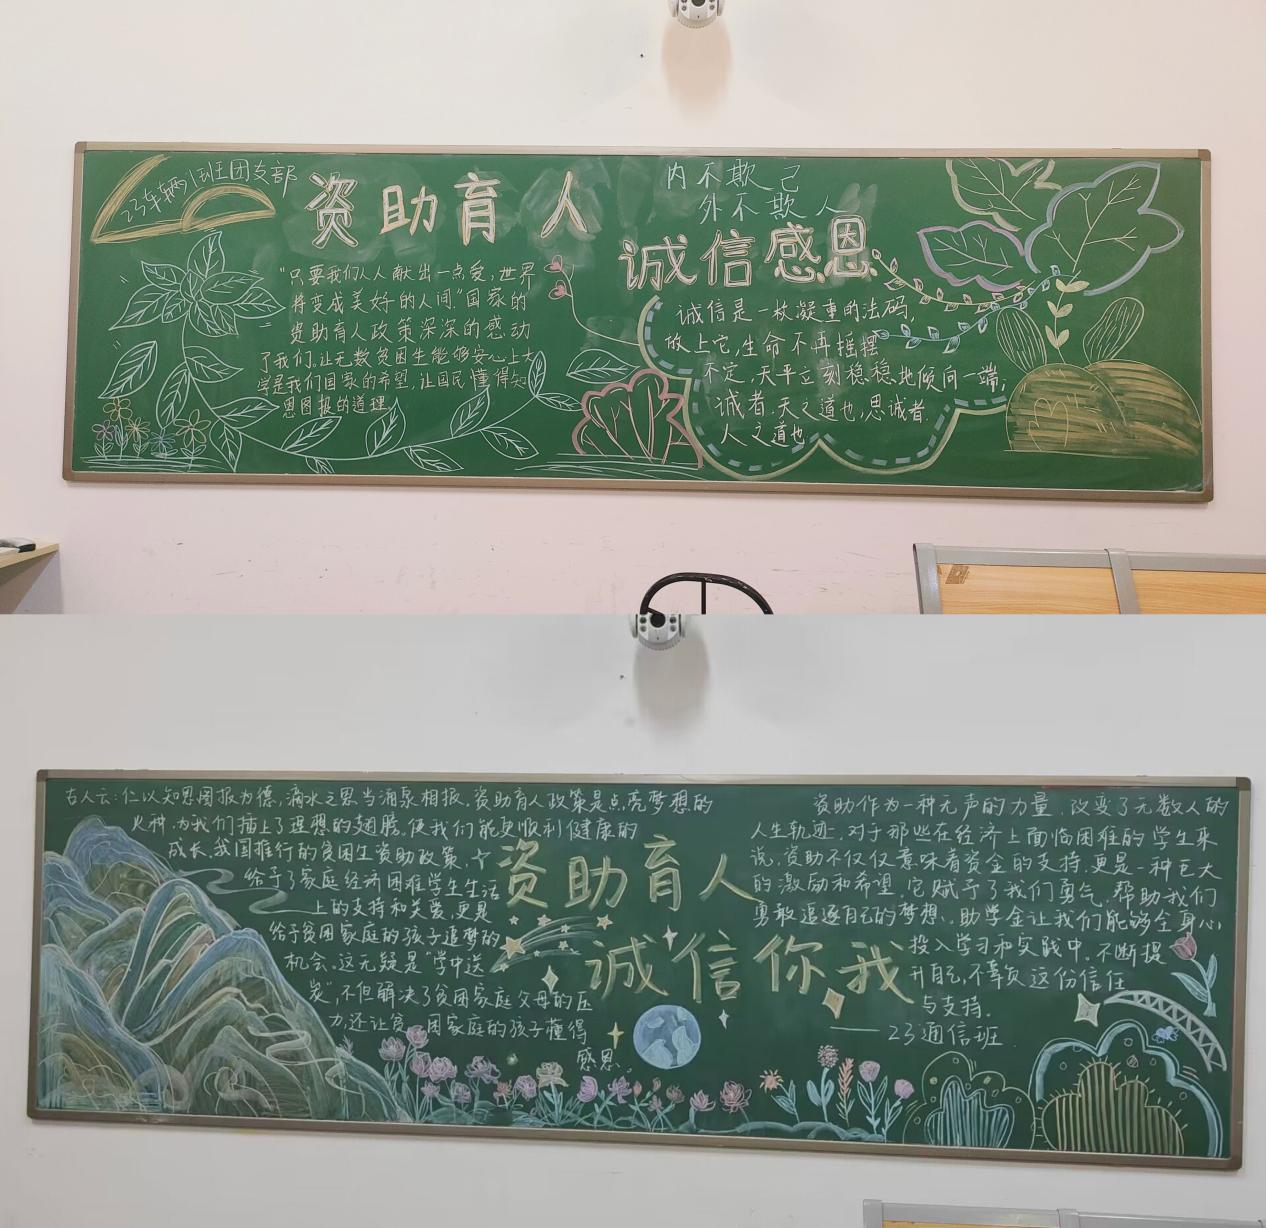 23车辆1班团支部
资助育人
"只要我们人人献出一点爱,世界
将变成美好的人间"国家的
资助育人政策深深的感动
了我们。让无数贫困生能够安心上大
学是我们国家的希望,让国民懂得知
恩图报的道理
内不欺己
外不欺人
诚信感恩
诚信是一枚凝重的法码,
放上它,生命不再摇摆
不定,天平立刻稳稳地倾向一端,
诚者,天之道也,思诚者.
人之道也
古人云:仁以知恩图报为德,滴水之恩当涌泉相报.资助育人政策是点亮梦想的
火种,为我们插上了理想的翅膀。使我们能更顺利健康的
成长.我国推行的贫困生资助政策,
给予了家庭经济困难学生生活
上的支持和关爱,更是
给予贫困家庭的孩子追梦的
机会.这无疑是"雪中送
炭",不但解决了贫困家庭父母的压
力,还让贫困家庭的孩子懂得
感恩。
资助育人
诚信你我
资助作为一种无声的力量,改变了无数人的
人生轨迹.对于那些在经济上面临困难的学生来
说,资助不仅仅意味着资金的支持.更是一种巨大
的激励和希望.它赋予了我们勇气,帮助我们
勇敢追逐自己的梦想.助学金让我们能够全身心
投入学习和实践中,不断提
升自己,不辜负这份信任
与支持.
——23通信班